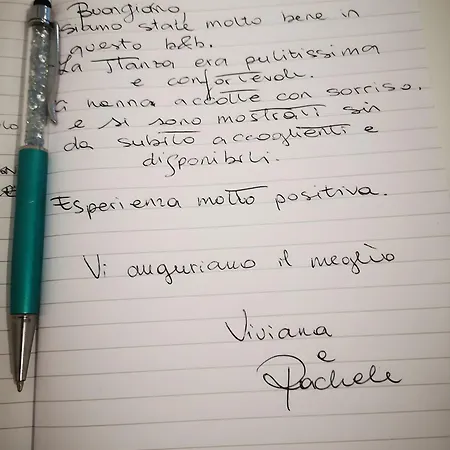 Buongiorno,
siamo state molto bene in
questo b&b.
La stanza era pulitissima
e confortevole.
Ci hanno accolte con sorriso.
e si sono mostrati sin
da subito accoglienti e
disponibili.
Esperienza molto positiva.
Vi auguriamo il meglio
Viviana
e
Rachele